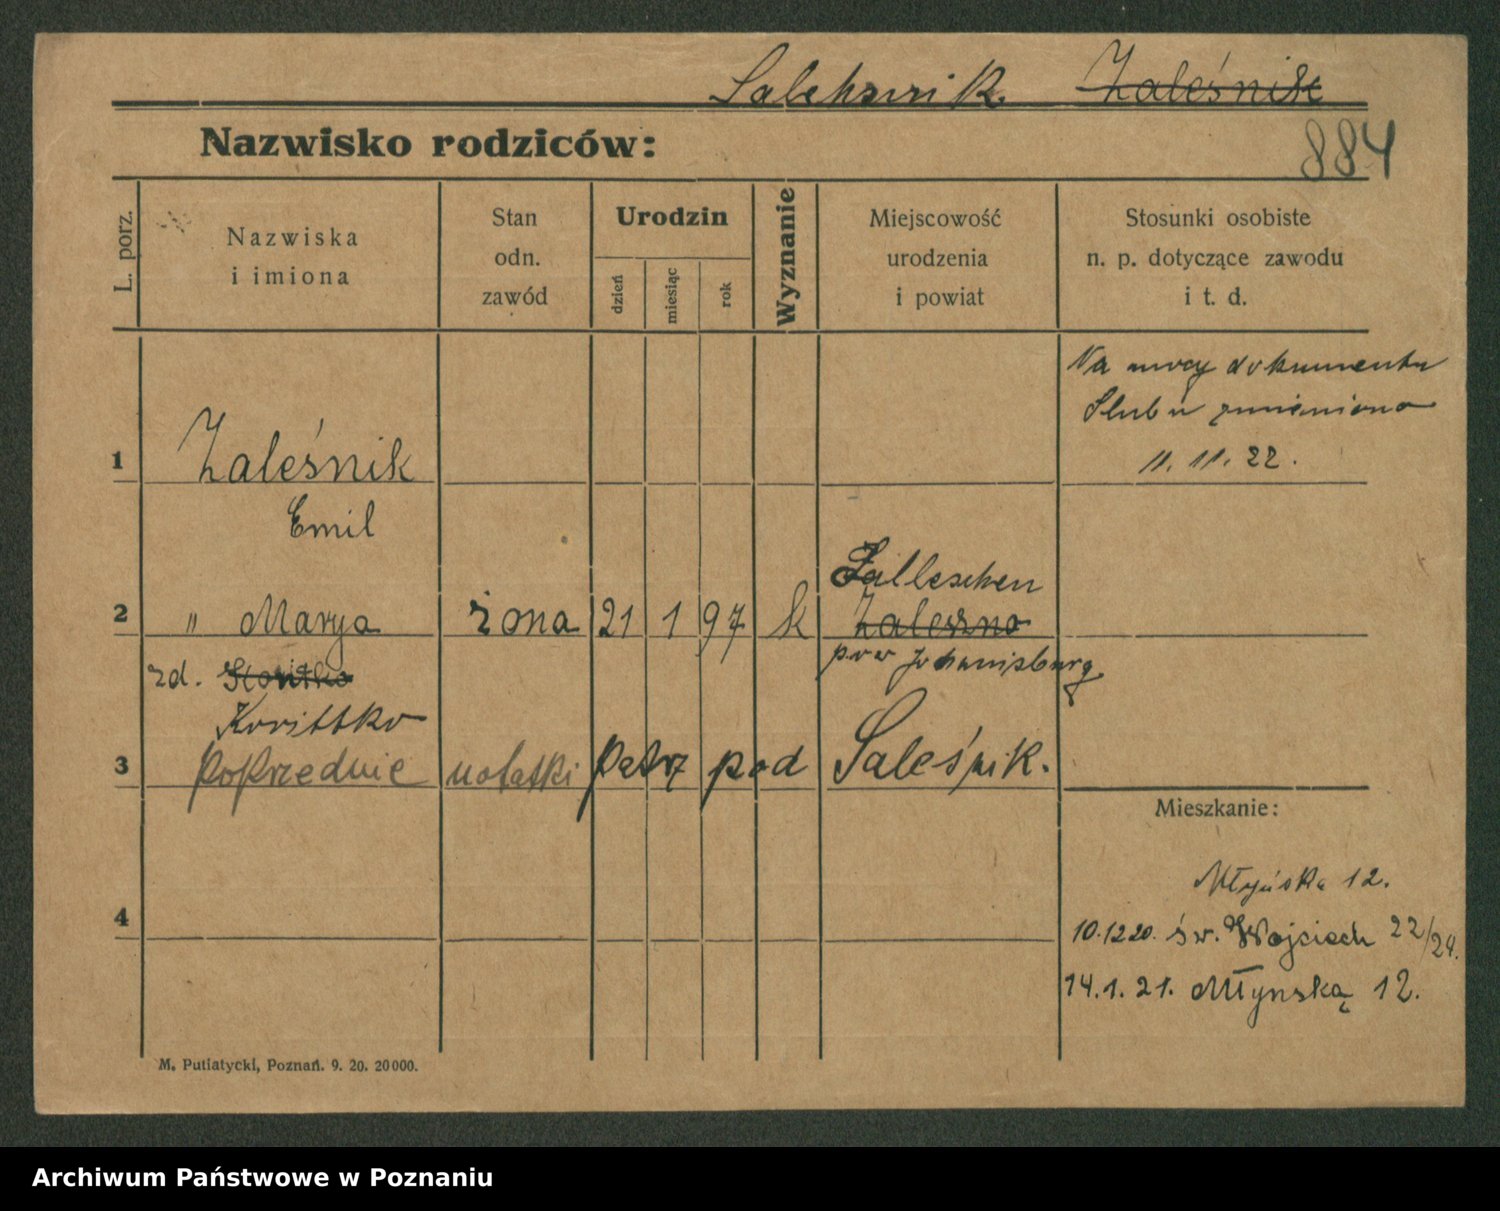 Salehsnik. Zaleśnik
Nazwisko rodziców:
884
L. porz.
Nazwiska
i imiona
Stan
odn.
zawód
Urodzin
dzień
miesiąc
rok
Wyznanie
Miejscowość
urodzenia
i powiat
Stosunki osobiste
n. p. dotyczące zawodu
i t. d.
Na mocy dokumentu
Ślubu zmieniono
11. 11. 22.
1 Zaleśnik
Emil
Zalleschen
2 " Marya żona 21 1 97 k Zaleszno
pow Johannisburg
zd.
Korittko
3 Poprzednie notatki patrz pod Saleśnik.
Mieszkanie:
Młyńska 12.
4
10.12.20. św. Wojciech 22/24.
14.1.21. Młynską 12.
M. Putiatycki, Poznań. 9. 20. 20000.
Archiwum Państwowe w Poznaniu